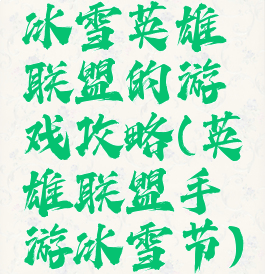 冰雪英雄
联盟的游
戏攻略(英
雄联盟手
游冰雪节)